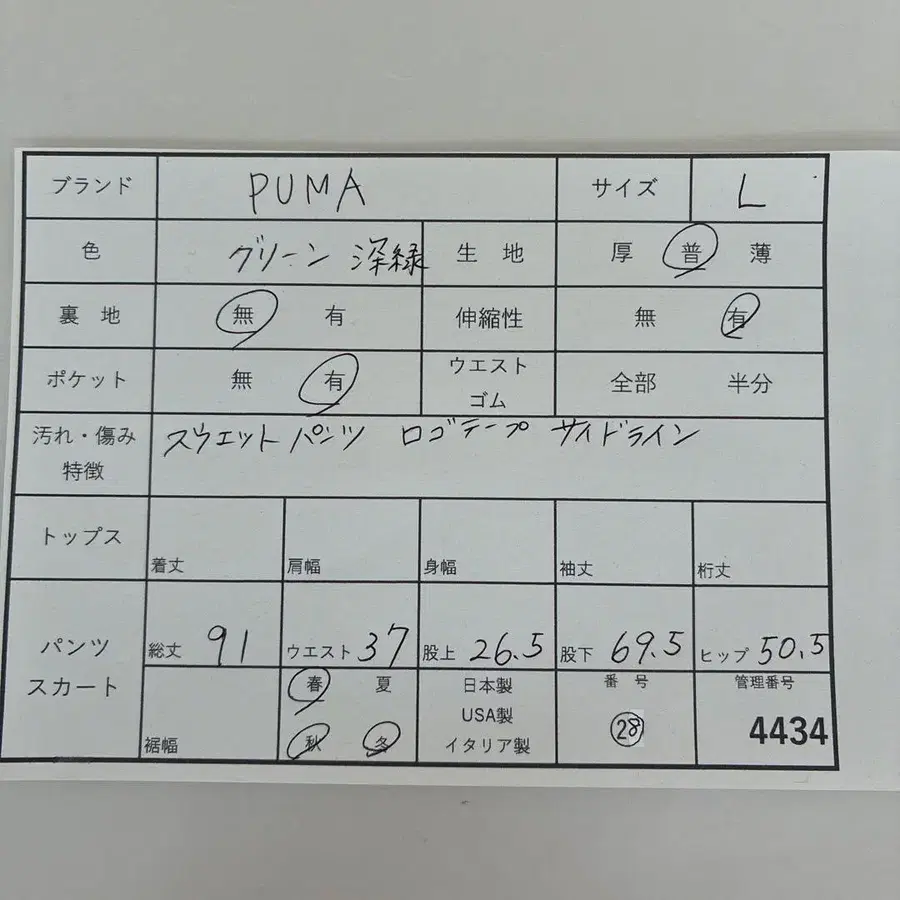 ブランド PUMA サイズ L
色 グリーン 深緑 生地 厚 普 薄
裏地 無 有 伸縮性 無 有
ポケット 無 有 ウエスト
ゴム 全部 半分
汚れ・傷み
特徴 スウエットパンツ ロゴテープ サイドライン
トップス 着丈 肩幅 身幅 袖丈 裄丈
パンツ
スカート 総丈 91 ウエスト 37 股上 26.5 股下 69.5 ヒップ 50.5
裾幅 春 夏
秋 冬
日本製
USA製
イタリア製
番号
28
管理番号
4434